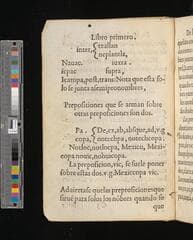 Libro primero.
inter,
trassan
nepantela,
Nauac. iuxta.
icpac supra,
Icampa, post, trans: Nota que esta so-
lo se junta a semipronombres,
Preposiciones que se arman sobre
otras preposiciones son dos.
Pa . De, ex, ab, absque, ad, v, g
copa, notechpa, notechcopa,
Notloc, notlocpa, Mexico, Mexi-
copa nouic, nohuicopa.
La preposicion, vic, se suele poner
sobre estas dos, v. g. Mexiccopa vic.
Aduiertase que las preposiciones que
siruē para solos los nōbres, quando se
que